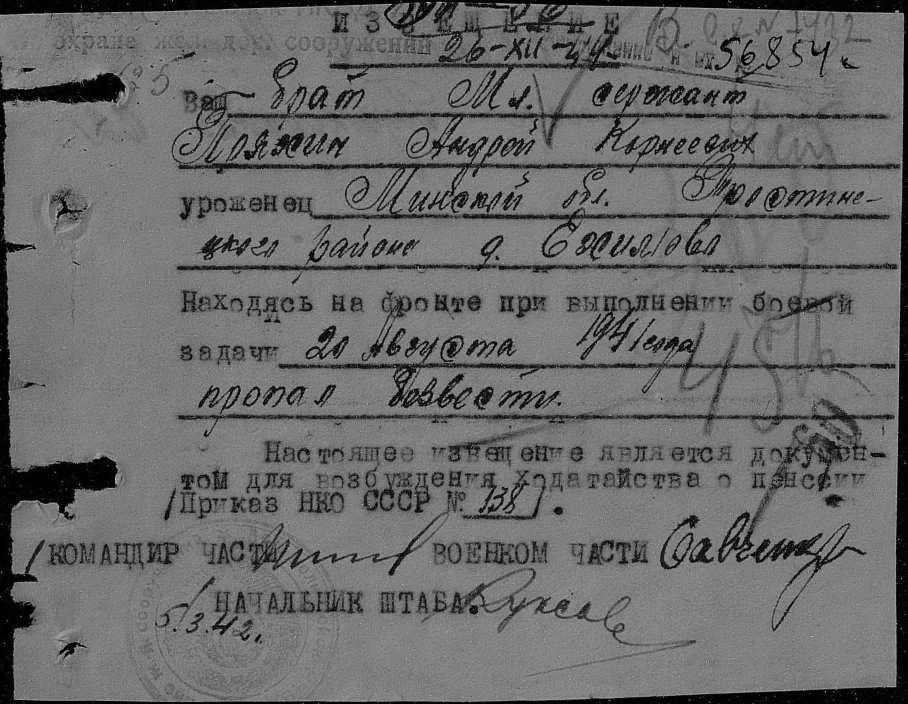 ИЗВЕЩЕНИЕ
охране жел. дор. сооружений 26-XII-44 56854.
Ваш брат Мл. сержант
Пряхин Андрей Корнеевич
уроженец Минской обл. Тростине-
цкого района д.
Находясь на фронте при выполнении боевой
задачи 20 Августа 1941 года
пропал безвести.
Настоящее извещение является докумен-
том для возбуждения ходатайства о пенсии
/Приказ НКО СССР № 138/.
/КОМАНДИР ЧАСТИ ВОЕНКОМ ЧАСТИ Савченко
/НАЧАЛЬНИК ШТАБА.
5/3.42.